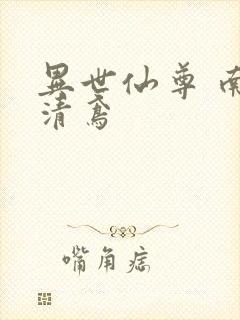 異世仙尊 南
清鳶
嘴角痣